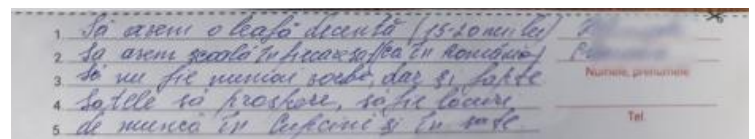 1. Să avem o leafă decentă (15-20 mii lei)
2. Să avem școală în fiecare sat (ca în România)
3. Să nu fie numai vorbe, dar și fapte
4. Satele să prospere, să fie locuri
5. de muncă în Cupcini și în sate.
Numele, prenumele
Tel.